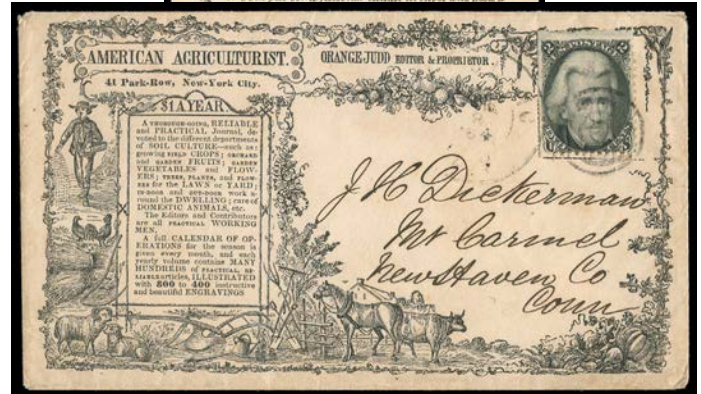 AMERICAN AGRICULTURIST.
ORANGE JUDD EDITOR & PROPRIETOR.
41 Park-Row, New-York City.
$1 A YEAR
A THOROUGH-GOING, RELIABLE
and PRACTICAL Journal, de-
voted to the different departments
of SOIL CULTURE—such as:
growing FIELD CROPS; ORCHARD
and GARDEN FRUITS; GARDEN
VEGETABLES and FLOW-
ERS; TREES, PLANTS, and FLOW-
ERS for the LAWNS or YARD;
IN-DOOR and OUT-DOOR work a-
round the DWELLING; care of
DOMESTIC ANIMALS, etc.
The Editors and Contributors
are all PRACTICAL WORKING
MEN.
A full CALENDAR OF OP-
ERATIONS for the season is
given every month, and each
yearly volume contains MANY
HUNDREDS of PRACTICAL, RE-
LIABLE articles, ILLUSTRATED
with 300 to 400 instructive
and beautiful ENGRAVINGS
J H Dickerman
Mt Carmel
New Haven Co
Conn